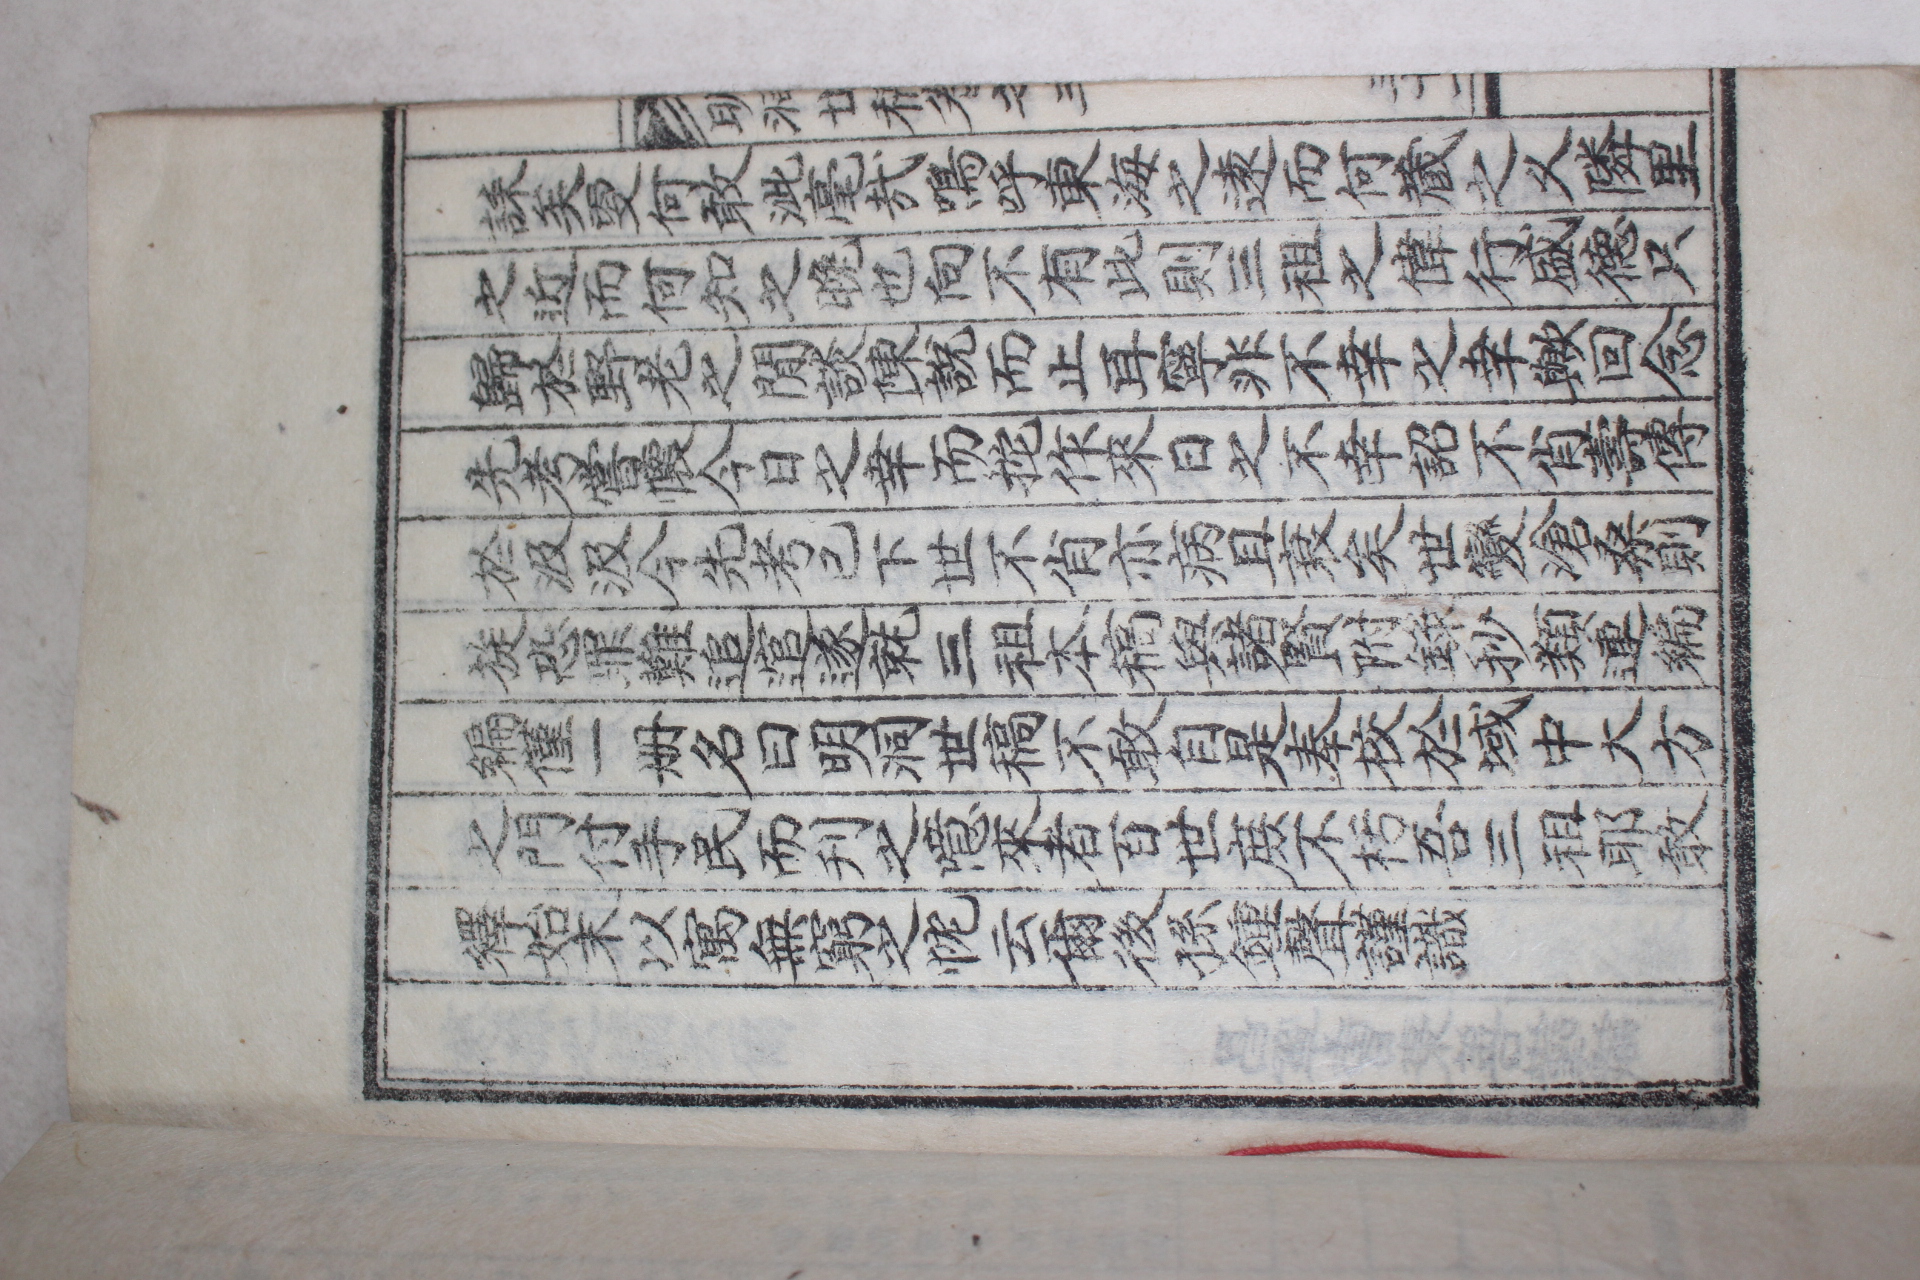 明洞世稿卷之三
三十二
誄矣更何敢泚毫哉嗚呼東海之遠而何蔵之久隣里
之近而何知之晩也向不有此則三祖之偉行盛德只
歸於野老之閒談陳說而止耳寧非不幸之幸歟回念
先考嘗懷今日之幸而挓作來日之不幸詔不肖壽傳
於汲汲今先考已下世不肖亦病且衰矣世變滄桑則
旋恐罪難追逭遂就三祖本稿與諸賢附錄抄類連編
編僅一册名曰明洞世稿不敢自是奉校於域中大方
之門付手民而刋之噫來者百世庻不朽吾三祖耶敢
繹始末以寓無窮之忱云爾後孫鍾聲謹識